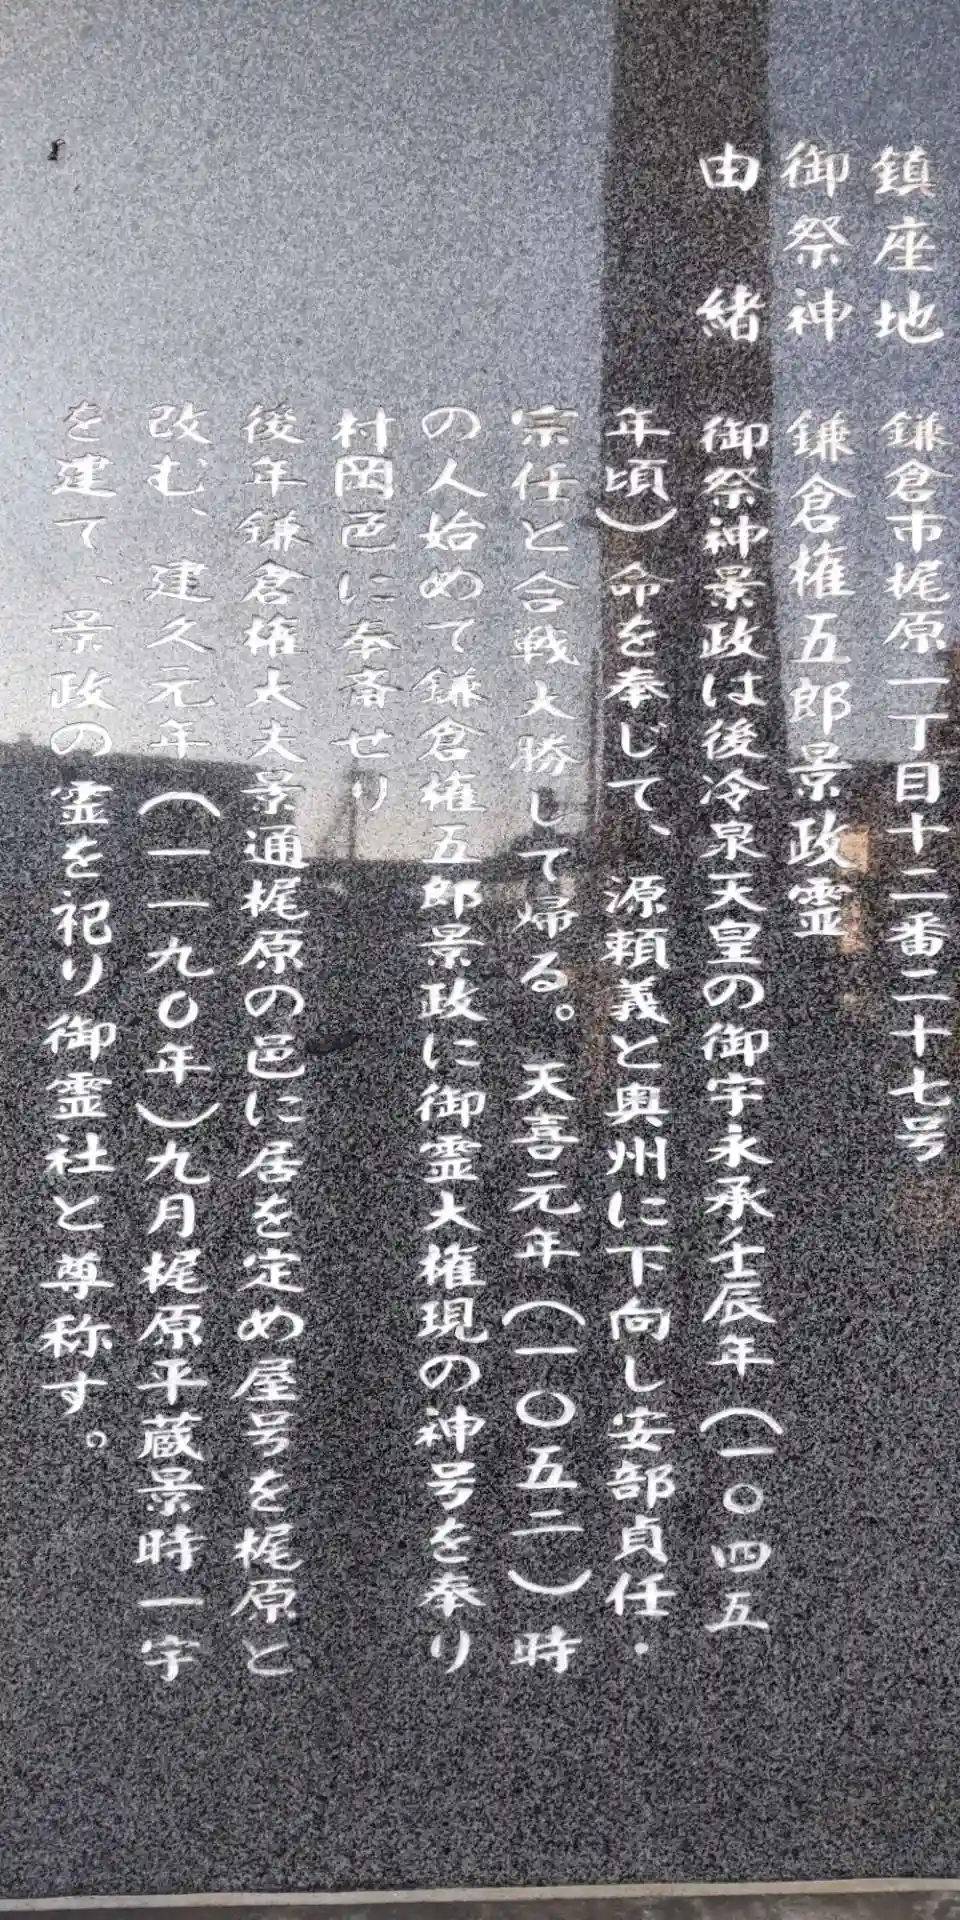 鎮座地 鎌倉市梶原一丁目十二番二十七号
御祭神 鎌倉権五郎景政霊
由緒 御祭神景政は後冷泉天皇の御宇永承ノ壬辰年(一〇四五
年頃)命を奉じて、源頼義と奥州に下向し安部貞任・
宗任と合戦大勝して帰る。天喜元年(一〇五二)時
の人始めて鎌倉権五郎景政に御霊大権現の神号を奉り
村岡邑に奉斎せり
後年鎌倉権大夫景通梶原の邑に居を定め屋号を梶原と
改む、建久元年(一一九〇年)九月梶原平蔵景時一宇
を建て、景政の霊を祀り御霊社と尊称す。